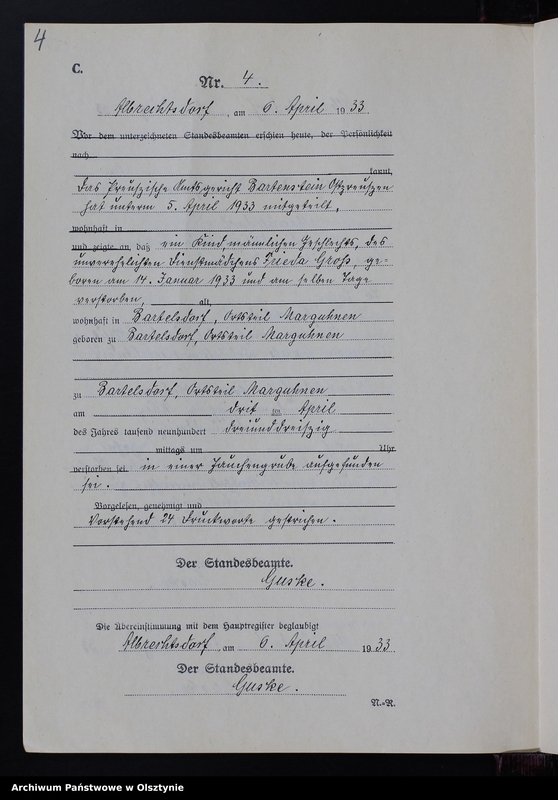 4
C.
Nr. 4.
Albrechtsdorf, am 6. April 1933
Vor dem unterzeichneten Standesbeamten erschien heute, der Persönlichkeit
nach
kannt,
das Preuszische Amtsgericht Bartenstein Ostpreuszen
hat unterm 5. April 1933 mitgeteilt,
wohnhaft in
und zeigte an, daß ein Kind, männlichen Geschlechts, des
unverehelichten Dienstmädchens Frieda Groß, ge=
boren am 14. Januar 1933 und am selben Tage
verstorben, alt,
wohnhaft in Bartelsdorf, Ortsteil Marguhnen
geboren zu Bartelsdorf, Ortsteil Marguhnen
zu Bartelsdorf, Ortsteil Marguhnen
am drit ten April
des Jahres tausend neunhundert dreiunddreiszig
mittags um Uhr
verstorben sei. in einer Jauchengrube aufgefunden
sei.
Vorgelesen, genehmigt und
Vorstehend 24 Druckworte gestrichen.
Der Standesbeamte.
Guske.
Die Übereinstimmung mit dem Hauptregister beglaubigt
Albrechtsdorf, am 6. April 1933
Der Standesbeamte.
Guske.
N.=R.
Archiwum Państwowe w Olsztynie